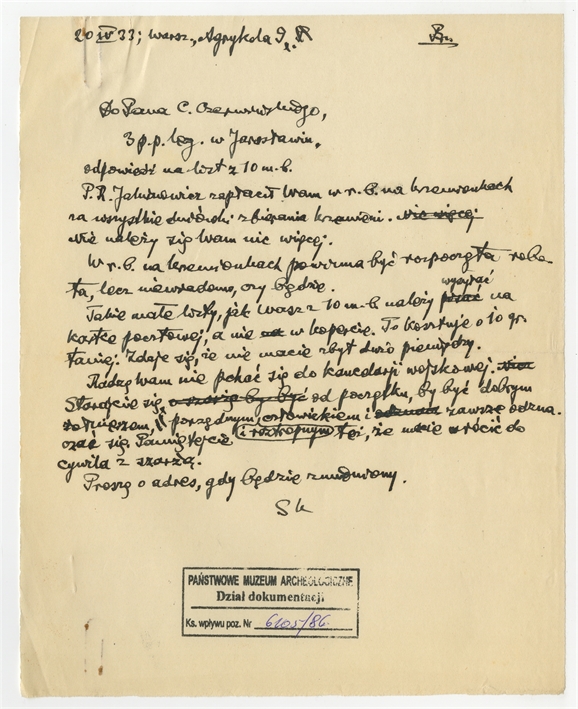 20 IV 33; Warsz., Agrykola 9,
Br.
Do Pana C. Czerwińskiego,
3 p.p. Leg. w Jarosławiu.
odpowiedź na list z 10 m.b.
P. R. Jakimowicz zapłacił Wam w r. b. na krzemionkach
za wszystkie dniówki zbierania krzemieni. nic więcej
nie należy się Wam nic więcej.
W r. b. na krzemionkach powinna być rozpoczęta robo-
ta, lecz niewiadomo, czy będzie.
wysyłać
Takie małe listy, jak Wasz z 10 m.b. należy pisać na
kartce pocztowej, a nie w kopercie. To kosztuje o 10 gr.
taniej. Zdaje się, że nie macie zbyt dużo pieniędzy.
Radzę Wam nie pchać się do kancelarji wojskowej.
Starajcie się, od początku, by być dobrym
żołnierzem, porządnym, człowiekiem i zawsze odzna-
czać się. Pamiętajcie i roztropnym też, że macie wrócić do
cywila z szarżą.
Proszę o adres, gdy będzie zmieniony.
Sk
PAŃSTWOWE MUZEUM ARCHEOLOGICZNE
Dział dokumentacji
Ks. wpływu poz. Nr 6205/86